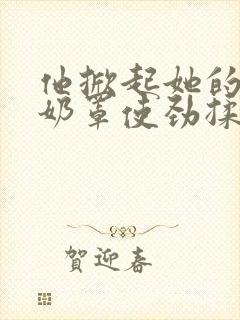 他掀起她的
奶罩使劲揉
賀迎春